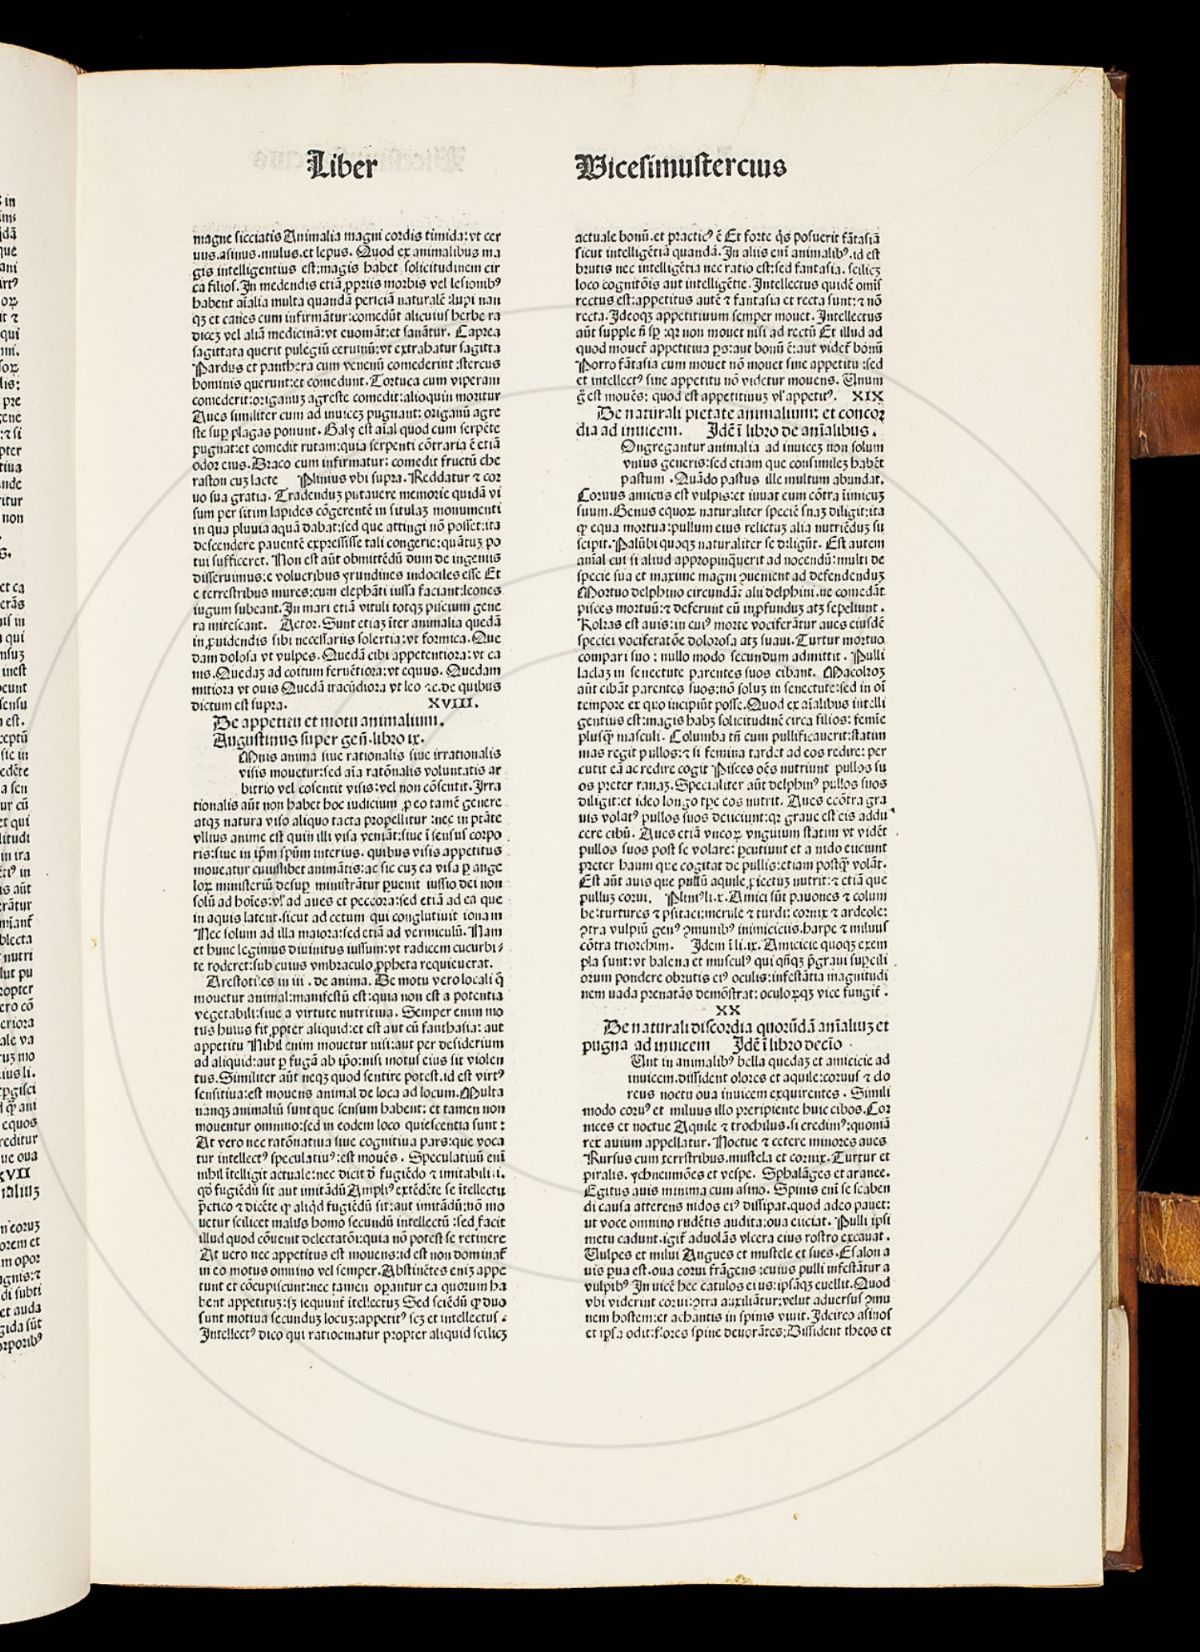 Liber
Vicesimustercius
magne siccitatis Animalia magni cordis timida: vt cer
uus. asinus. mulus. et lepus. Quod ex animalibus ma
gis intelligentius est: magis habet solicitudinem cir
ca filios. In medendis etiā ꝓpriis morbis vel lesionibꝰ
habent aīalia multa quandā periciā naturalē: lupi nan
qꝫ et canes cum infirmātur: comedūt alicuius herbe ra
diceꝫ vel aliā medicinā: vt euomāt: et sanātur. Caprea
sagittata querit pulegiū ceruinū: vt extrahatur sagitta
Pardus et panthera cum venenū comederint: stercus
hominis querunt: et comedunt. Tortuca cum viperam
comederit: origanuꝫ agreste comedit: alioquin moritur
Aues similiter cum ad inuiceꝫ pugnant: origanū agre
ste suꝑ plagas ponunt. Galꝫ est aīal quod cum serpēte
pugnat: et comedit rutam: quia serpenti cōtraria ē etiā
odor eius. Draco cum infirmatur: comedit fructū che
raston cuꝫ lacte Plinius vbi supra. Reddatur ⁊ cor
uo sua gratia. Tradenduꝫ putauere memorie quidā vi
sum per sitim lapides cōgerentē in situlaꝫ monumenti
in qua pluuia aquā dabat: sed que attingi nō posset: ita
descendere pauentē expressisse tali congerie: quātuꝫ po
tui sufficeret. Non est aūt obmittēdū dum de ingeniis
disseruimus: e volucribus yrundines indociles esse Et
e terrestribus mures: cum elephāti iussa faciant: leones
iugum subeant. In mari etiā vituli totqꝫ piscium gene
ra mitescant. Actor. Sunt etiaꝫ īter animalia quedā
in ꝓuidendis sibi necessariis solertia: vt formica. Que
dam dolosa vt vulpes. Quedā cibi appetentiora: vt ca
nis. Quedaꝫ ad coitum feruētiora: vt equus. Quedam
mitiora vt ouis Quedā iracūdiora vt leo ⁊c. de quibus
dictum est supra. XVIII.
De appetitu et motu animalium.
Augustinus super geñ. libro ix.
Mnis anima siue rationalis siue irrationalis
visis mouetur: sed aīa ratōnalis voluntatis ar
bitrio vel cōsentit visis: vel non cōsentit. Irra
tionalis aūt non habet hoc iudicium ꝓ eo tamē genere
atqꝫ natura viso aliquo tacta propellitur: nec in ptāte
vllius anime est quin illi visa veniāt: siue ī sensus corpo
ris: siue in ip̄m sp̄um interius. quibus visis appetitus
moueatur cuiuslibet animātis: ac sic cuꝫ ea visa ꝑ ange
loꝝ ministeriū desuꝑ ministrātur ꝑuenit iussio dei non
solū ad hoīes: vl̄ ad aues et peccora: sed etiā ad ea que
in aquis latent. sicut ad cetum qui conglutiuit ionam
Nec solum ad illa maiora: sed etiā ad vermiculū. Nam
et hunc legimus diuinitus iussum: vt radicem cucurbi⸗
te roderet: sub cuius vmbraculo ꝓpheta requieuerat.
Arestotiles in iii. de anima. De motu vero locali q̄
mouetur animal: manifestū est: quia non est a potentia
vegetabili: siue a virtute nutritiua. Semper enim mo
tus huius fit ꝓpter aliquid: et est aut cū fanthasia: aut
appetitu Nihil enim mouetur nisi: aut per desiderium
ad aliquid: aut ꝑ fugā ab ip̄o: nisi motus eius sit violen
tus. Similiter aūt neqꝫ quod sentire potest. id est virtꝰ
sensitiua: est mouens animal de loca ad locum. Multa
nanqꝫ animaliū sunt que sensum habent: et tamen non
mouentur omnino: sed in eodem loco quiescentia sunt:
At vero nec ratōnatiua siue cognitiua pars: que voca
tur intellectꝰ speculatiuꝰ: est mouēs. Speculatiuū enī
nihil ītelligit actuale: nec dicit d̄ fugiēdo ⁊ imitabili:
qd̄ fugiēdū sit aut imitādū Ampliꝰ extēdēte se ītellectu
p̄ctico ⁊ dicēte ꝙ aliqd̄ fugiēdū sit: aut imitādū: nō mo
uetur scilicet malus homo secundū intellectū: sed facit
illud quod cōuenit delectatōi: quia nō potest se retinere
At vero nec appetitus est mouens: id est non dominat̄
in eo motus omnino vel semper. Abstinētes eniꝫ appe
tunt et cōcupiscunt: nec tamen operantur ea quorum ha
bent appetituꝫ: sꝫ sequunt̄ ītellectuꝫ Sed sciēdū ꝙ duo
sunt motiua secunduꝫ locuꝫ: appetitꝰ scꝫ et intellectus.
Intellectꝰ dico qui ratiocinatur propter aliquid scilicꝫ
actuale bonū. et practicꝰ ē Et forte q̄s posuerit fātasiā
sicut intelligētiā quandā. In aliis enī animalibꝰ. id est
brutis nec intelligētia nec ratio est: sed fantasia. scilicꝫ
loco cognitōis aut intelligētie. Intellectus quidē omīs
rectus est: appetitus autē ⁊ fantasia et recta sunt: ⁊ nō
recta. Ideoqꝫ appetitiuum semper mouet. Intellectus
aūt supple ñ sꝑ: qꝛ non mouet nisi ad rectū Et illud ad
quod mouet̄ appetitiua p̄s: aut bonū ē: aut videt̄ bonū
Porro fātasia cum mouet nō mouet sine appetitu: sed
et intellectꝰ sine appetitu nō videtur mouens. Unum
g̊ est mouēs: quod est appetitiuuꝫ vl̄ appetitꝰ. XIX
De naturali pietate animalium: et concoꝝ
dia ad inuicem. Idē ī libro de aīalibus.
Ongregantur animalia ad inuiceꝫ non solum
vnius generis: sed etiam que consimileꝫ habēt
pastum. Quādo pastus ille multum abundat.
Coruus amicus est vulpis: et iuuat eum cōtra īimicuꝫ
suum. Genus equoꝝ naturaliter speciē suaꝫ diligit: ita
ꝙ equa mortua: pullum eius relictuꝫ alia nutriēduꝫ su
scipit. Palūbi quoqꝫ naturaliter se diligūt. Est autem
anīal cui si aliud appropinq̄uerit ad nocendū: multi de
specie sua et maxime magni ꝓuenient ad defendenduꝫ
Mortuo delphino circundāt̄ alii delphini. ne comedāt
pisces mortuū: ⁊ deferunt eū in ꝓfunduꝫ atqꝫ sepeliunt.
Kolras est auis: in cuiꝰ morte vociferātur aues eiusdē
speciei vociferatōe dolorosa atqꝫ suaui. Turtur mortuo
compari suo: nullo modo secundum admittit. Pulli
laclaꝫ in senectute parentes suos cibant. Macoloꝫ
aūt cibāt parentes suos: nō soluꝫ in senectute: sed in oī
tempore ex quo incipiūt posse. Quod ex aīalibus intelli
gentius est: magis habꝫ solicitudinē circa filios: femīe
plusq̄ masculi. Columba tn̄ cum pullificauerit: statim
mas regit pullos: ⁊ si femina tardet ad eos redire: per
cutit eā ac redire cogit Pisces oēs nutriunt pullos su
os preter ranaꝫ. Specialiter aūt delphinꝰ pullos suos
diligit: et ideo longo tꝑe eos nutrit. Aues ecōtra gra
uis volatꝰ pullos suos deiiciunt: qꝛ graue est eis addu
cere cibū. Aues etiā vncoꝝ vnguium statim vt vidēt
pullos suos posse volare: ꝑcutiunt et a nido eiiciunt
preter haum que cogitat de pullis: etiam postq̄ volāt.
Est aūt auis que pullū aquile ꝓiectuꝫ nutrit: ⁊ etiā que
pulluꝫ corui. Pliniꝰ li. x. Amici sūt pauones ⁊ colum
be: turtures ⁊ psitaci: merule ⁊ turdi: cornix ⁊ ardeole:
ꝯtra vulpiū genꝰ ꝯmunibꝰ inimiciciis. harpe ⁊ miluus
cōtra triorchim. Idem ī li. ix. Amicicie quoqꝫ exem
pla sunt: vt balena et musculꝰ qui qn̄qꝫ p̄graui suꝑcili
orum pondere obrutis eiꝰ oculis: infestātia magnitudi
nem uada prenatās demōstrat: oculoꝝqꝫ vice fungit̄.
XX
De naturali discordia quorūdā anīaliuꝫ et
pugna ad inuicem Idē ī libro decīo
Unt in animalibꝰ bella quedaꝫ et amicicie ad
inuicem. dissident olores et aquile: coruus ⁊ clo
reus noctu oua inuicem exquirentes. Simili
modo coruꝰ et miluus illo preripiente huic cibos. Cor
nices et noctue Aquile ⁊ trochilus. si credimꝰ: quoniā
rex auium appellatur. Noctue ⁊ cetere minores aues
Rursus cum terrstribus. mustela et cornix. Turtur et
piralis. ychneumōes et vespe. Sphalāges et aranee.
Egitus auis minima cum asino. Spinis enī se scaben
di causa atterens nidos eiꝰ dissipat. quod adeo pauet:
ut voce omnino rudētis audita: oua eiiciat. Pulli ipsi
metu cadunt. igit̄ aduolās vlcera eius rostro excauat.
Uulpes et milui Angues et mustele et sues. Esalon a
uis ꝑua est. oua corui frāgens: cuius pulli infestātur a
vulpibꝰ In uicē hec catulos eius: ipsāqꝫ euellit. Quod
vbi viderint corui: ꝯtra auxiliātur: velut aduersus ꝯmu
nem hostem: et achantis in spinis viuit. Idcirco asinos
et ipsa odit: flores spine deuorātes: Dissident theos et